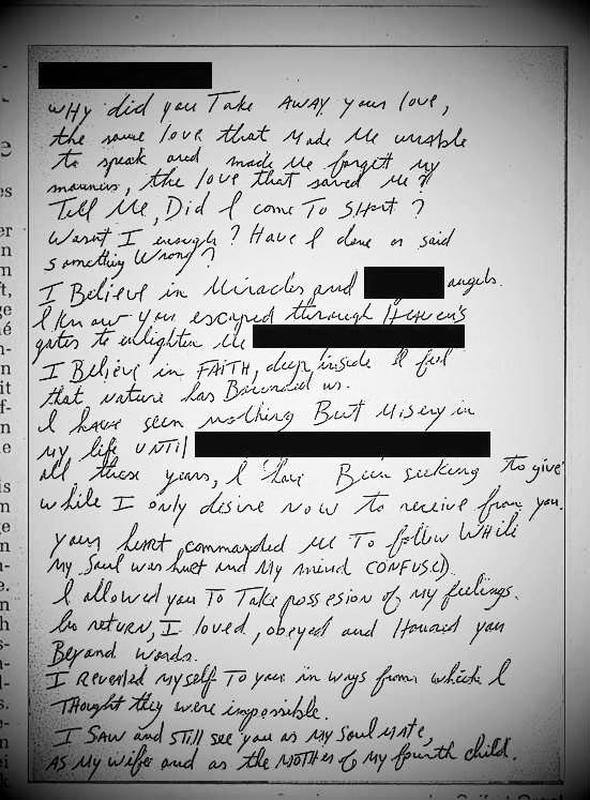 WHY did you Take AWAY your love,
the same love that Made Me unable
to speak and made Me forgett my
manners, the love that saved Me?
Tell Me, Did I come To SHort ?
Wasnt I enough ? Have I done or said
something Wrong ?
I Believe in Miracles and angels.
I Know you escaped through Heaven's
gates to enlighten Me
I Believe in FAITH, deep inside I feel
that nature has Bounded us.
I have seen nothing But Misery in
my life UNTIL
all these years, I have Been seeking To give
while I only desire NOW to receive from you.
your heart commanded Me To follow While
My Soul was hurt and My mind CONFUSED.
I allowed you To Take possesion of My feelings.
In return, I loved, obeyed and Honored you
Beyond words.
I Revealed myself To you in ways from which I
THought they were impossible.
I SAW and STill see you as My SoulMATE,
AS My wife and as the MOTHER of My fourth child.